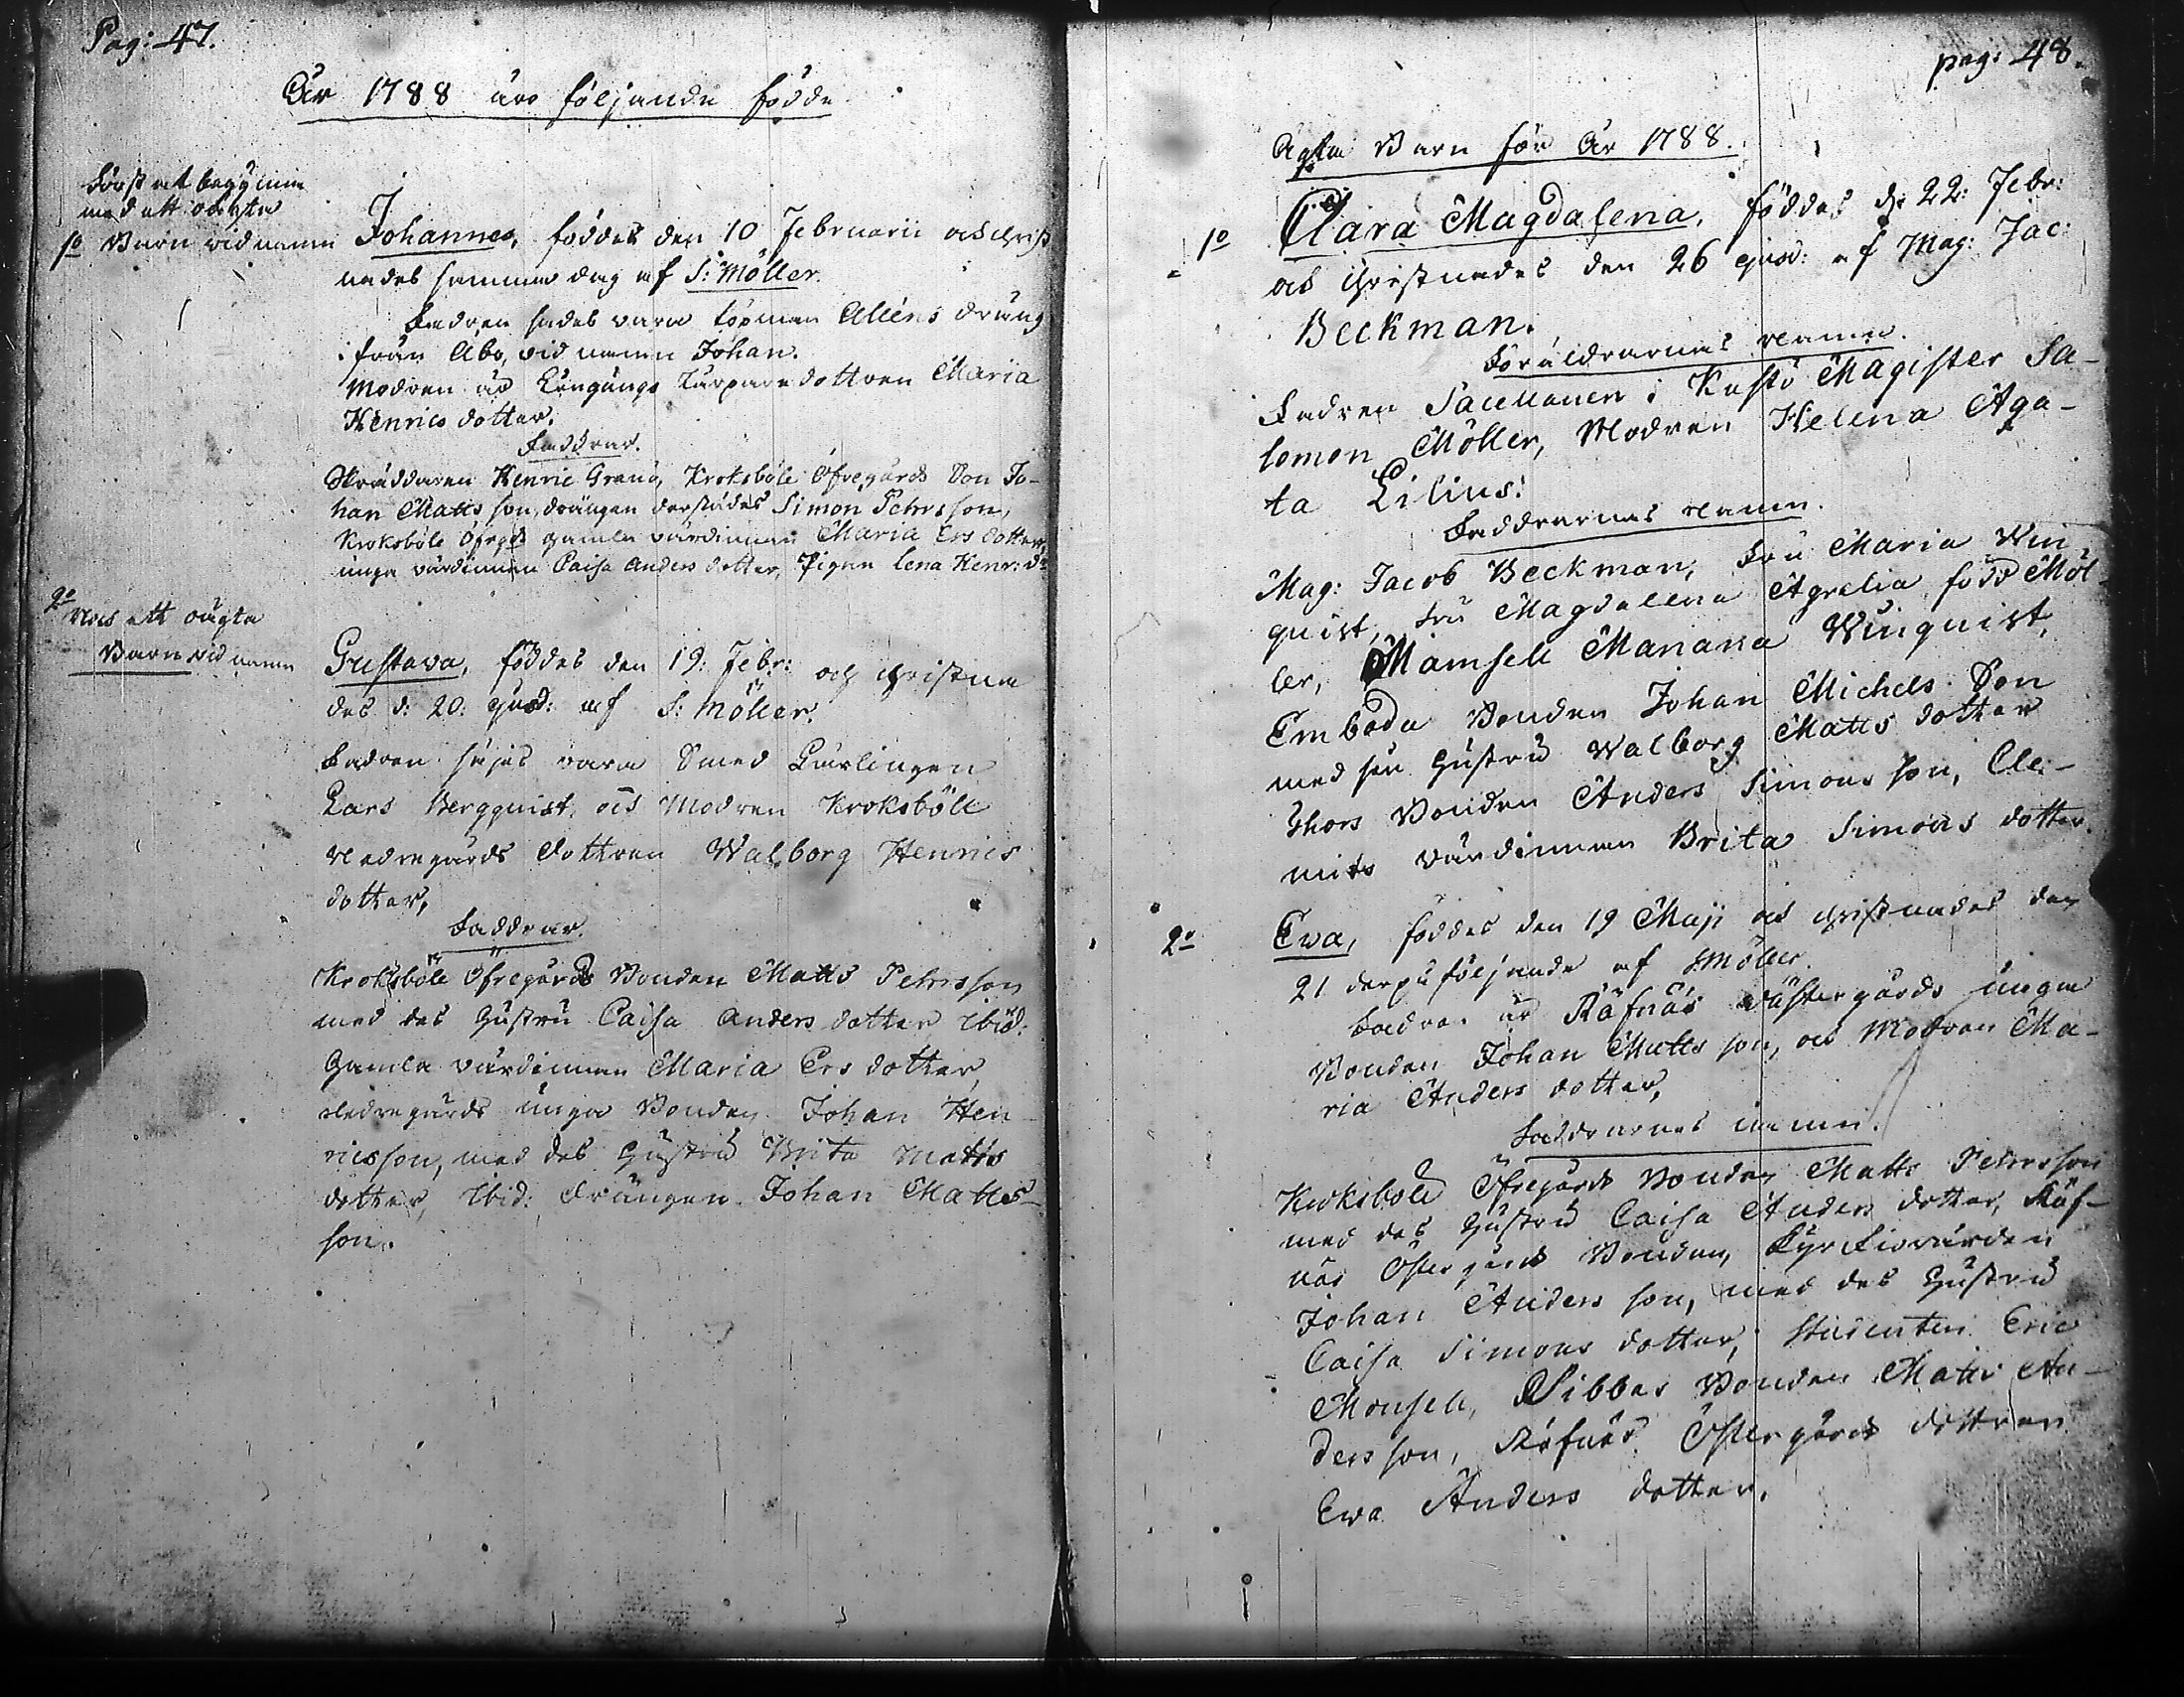 Pag: 47.
År 1788 äro följande födde
Först att begynna
med ett oächta
1o Barn vid namn
Johannes, föddes den 10 Februarii och christ
nades samma dag af S: Möller.
Fadren sades vara Köpman Alléns dräng
ifrån Åbo, vid namn Johan.
Modren är Torpare dottren Maria
Henrics dotter.
Faddrar.
Skräddaren Henric Granö, Kroksböle Öfregårds Son Jo-
han Matts son, drängen derstädes Simon Pehrsson,
Kroksböle Öfregds gamla värdinnan Maria Ers dotter,
unga värdinnan Caisa Anders dotter, Pigan Lena Henr: dr
2o
Noch ett oägta
Barn vid namn
Gustava, föddes den 19: Febr: och christna
des d: 20: ejusd: af S: Möller.
Fadren säjes vara Smed Gärlingen
Lars Bergquist, och Modren Kroksböle
Nedregårds dottren Walborg Henrics
dotter,
Faddrar.
Kroksböle Öfregårds Bonden Matts Pehrsson
med des Hustru Caisa Anders dotter Ibid:
Gamla värdinnan Maria Ers dotter,
Nedregårds unga Bonden Johan Hen
ricsson, med des Hustru Brita Matts
dotter, Ibid: drängen Johan Matts-
son.
pag: 48.
Agta Barn för År 1788.
1o
Clara Magdalena, föddes d: 22: Febr:
och christnades den 26 ejusd: af Mag: Jac:
Beckman.
Föräldrarnas namn.
Fadren Sacellanen i Magister Sa-
lomon Möller, Modren Helena Aga-
ta Lilius.
Faddrarnas namn.
Mag: Jacob Beckman, Fru Maria Win
quist, Fru Magdalena Agrelia född Möl-
ler, Mamsell Mariana Winquist,
Embodu Bonden Johan Michels Son
med sin Hustru Walborg Matts dotter
Thors Bonden Anders Simons son, Cle-
mits värdinnan Brita Simons dotter.
2o
Ewa, föddes den 19 Maji och christnades den
21 derpåföljande af SMöller
Fadren är Räfnäs Västergårds unga
Bonden Johan Matts son, och Modren Ma-
ria Anders dotter,
Faddrarnes namn.
Kroksböle Öfregårds Bonden Matts Pehrsson
med des Hustru Caisa Anders dotter, Räf-
näs Östergårds Bonden, Kyrkiovärden
Johan Anders son, med des Hustru
Caisa Simons dotter, Studenten Eric
Monsell, Sibbas Bonden Matts An-
ders son, Räfnäs Östergårds dottren
Ewa Anders dotter.